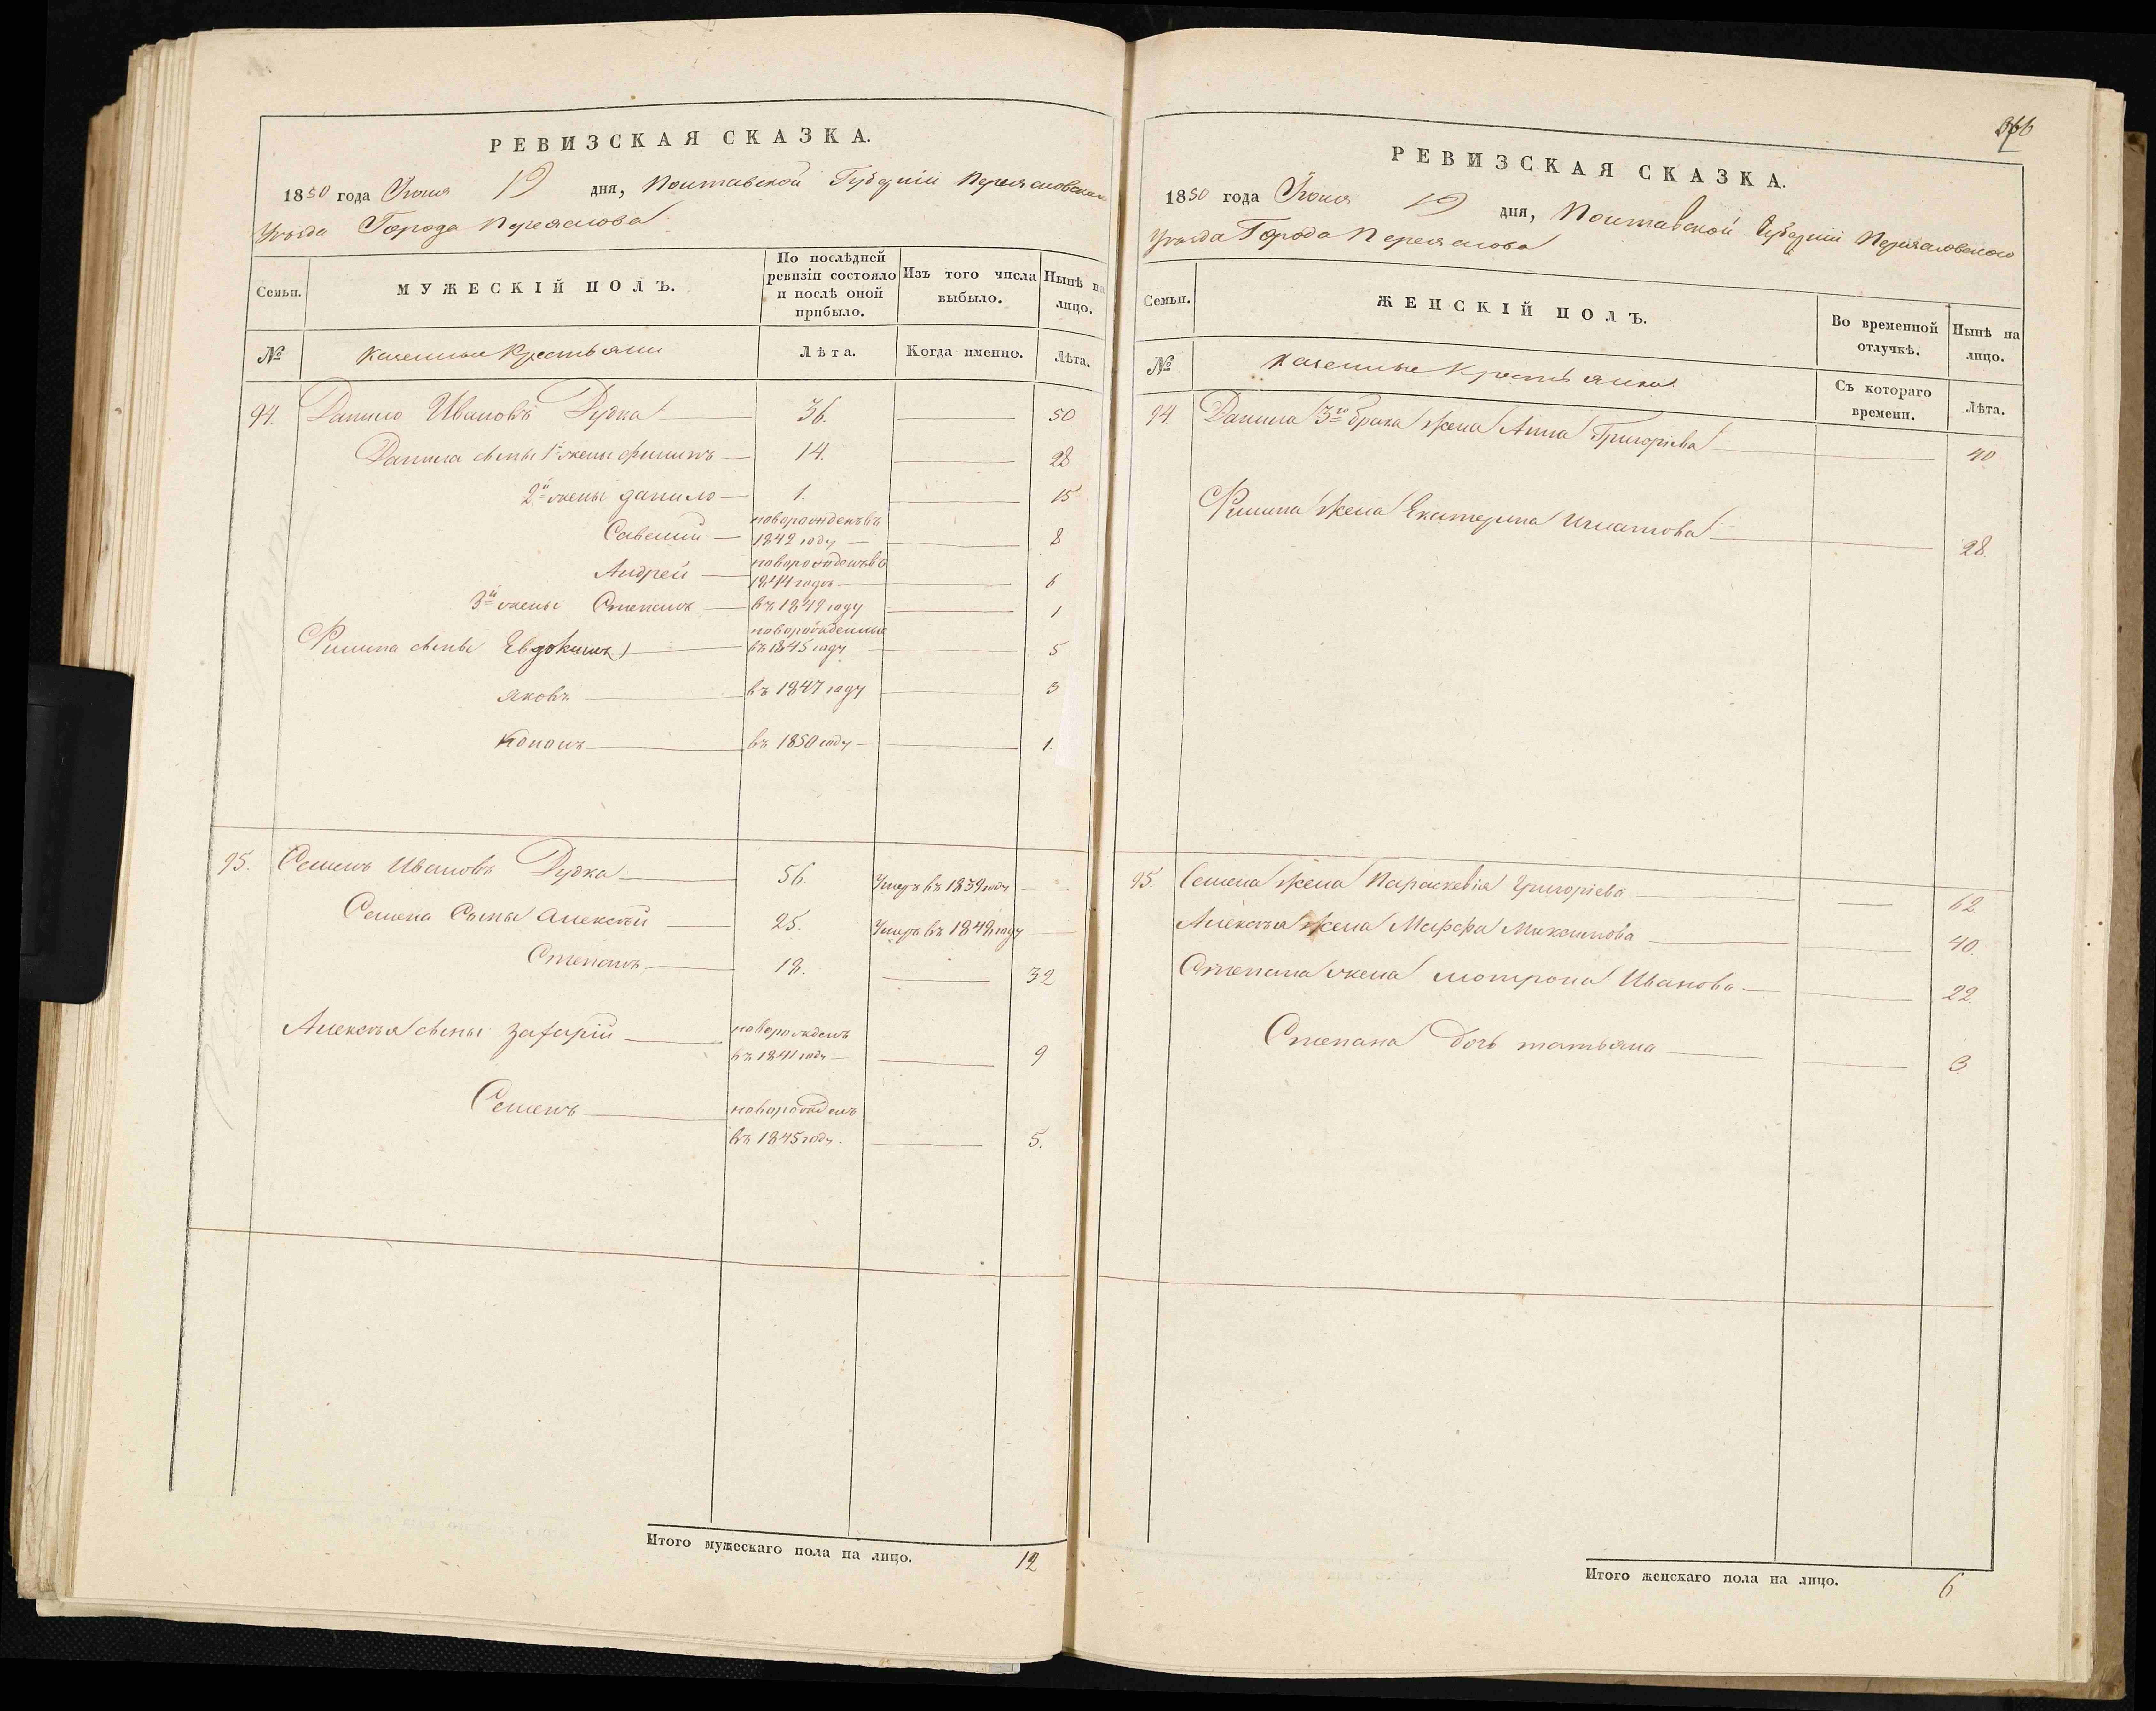 РЕВИЗСКАЯ СКАЗКА.
1850 года Іюня 19 дня, Полтавской Губерніи Переяславскаго
Уѣзда Города Переяслова
Семьи.
МУЖЕСКІЙ ПОЛЪ.
По послѣдней ревизіи состояло и послѣ оной прибыло.
Изъ того числа выбыло.
Нынѣ на лицо.
№
Казенные Крестьяни
Лѣта.
Когда именно.
Лѣта.
94. Данило Ивановъ Дудка 36. 50
Данила сыны 1й жены Филипъ 14. 28
2й жены данило 1. 15
Савелий новорожденъ въ 1842 году 8
Андрей новорожденъ въ 1844 годъ 6
3й жены Степанъ въ 1849 году 1
Филипа сыны Евдокимъ новорожденны въ 1845 году 5
яковъ въ 1847 году 3
Кононъ въ 1850 году 1.
95. Семенъ Ивановъ Дудка 56. Умеръ въ 1839 году
Семена Сыны Алексѣй 25. Умеръ въ 1848 году
Степанъ 18. 32
Алексѣя сыны Захарій новорожденъ въ 1841 году 9
Семенъ новорожденъ въ 1845 году. 5.
Итого мужескаго пола на лицо. 12
366
РЕВИЗСКАЯ СКАЗКА.
1850 года Іюня 19 дня, Полтавской Губерніи Переяславского
Уѣзда Города Переяслова
Семьи.
ЖЕНСКІЙ ПОЛЪ.
Во временной отлучкѣ.
Нынѣ на лицо.
№
Казенные Крестьянки
Съ котораго времени.
Лѣта.
94. Данила 3го брака жена Анна Григоріева 40
Филипа жена Екатерина Игнатова 28.
95. Семена жена Параскевія Григоріева 62.
Алексѣя жена Марфа Максимова 40.
Степана жена мотрона Иванова 22.
Степана дочь татьяна 3.
Итого женскаго пола на лицо. 6